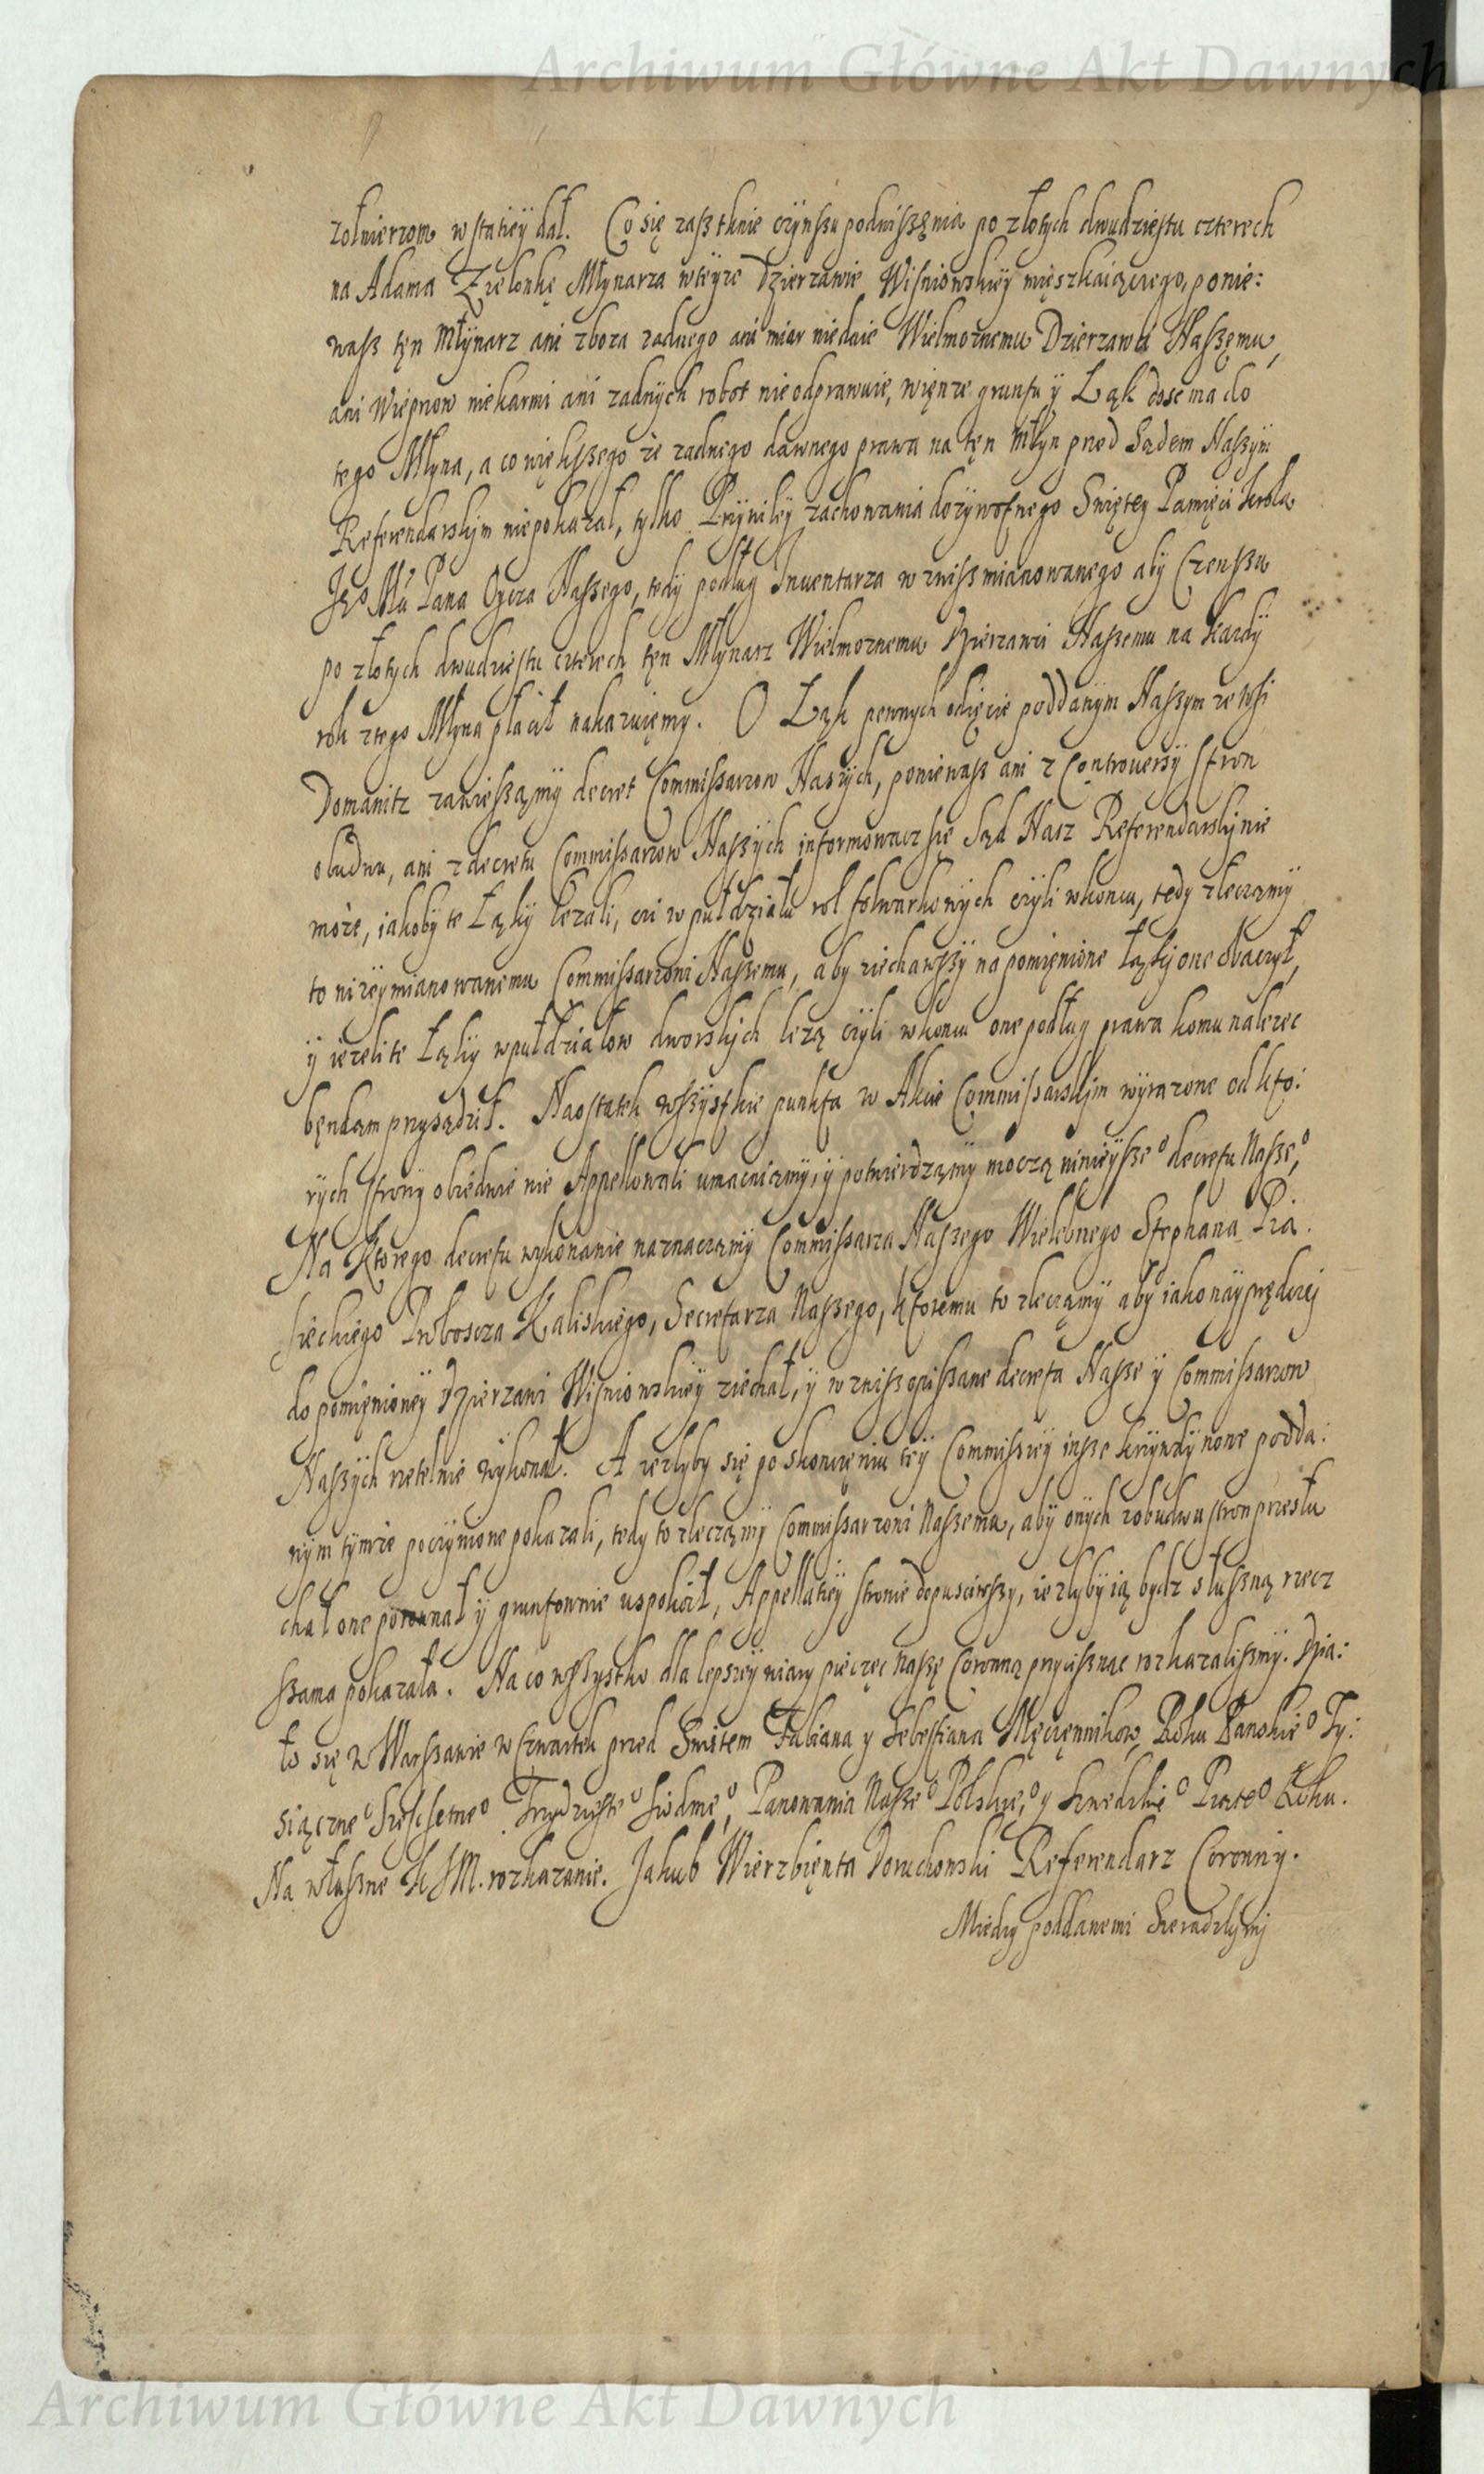 Archiwum Główne Akt Dawnych
zołnierzom w statiey dał. Co się zasz tknie czynszu podniszęnia po złotych dwudziestu czterech
na Adama Zielonkę Młynarza wteyze Dzierzawie Wisniowskiey mięszkaiącego, ponie:
wasz tęn Młynarz ani zboza zadnego ani miar niedaie Wielmoznemu Dzierzawci Naszęmu,
ani Wieprzow niekarmi ani zadnych robot nie odprawuie, więnze gruntu y Łąk dosc ma do
tego Młyna, a co większego ze zadnego dawnego prawa na tęn Młyn przed Sądem Naszym
Referendarskim niepokazał, tylko Przywiley zachowania dozywotnego Swiętey Pamięci Krola
Je⁰ Mci Pana Oyca Naszego, tedy podług Inwentarza w zwisz mianowanego aby Czenszu
po złotych dwudziestu czterech tęn Młynarz Wielmoznemu Dzierzawci Naszemu na kazdy
rok ztego Młyna płacił nakazuięmy. O Łąk pewnych odięcie poddanym Naszym ze wsi
Domanitz zawieszamy decret Commissarzow Naszych, poniewasz ani z Controuersÿ stron
obudwu, ani z decretu Commissarzow Naszych informowacz się Sąd Nasz Referendarsky nie
moze, iakoby te Łąky lezali, czi w puł działu rol folwarkowych czyli wkoncu, tedy zlecamy
to nizey mianowanemu Commissarzowi Naszemu, aby ziechawszy na pomięnione Łąky one obaczył,
y iezeli te Łąky w puł działow dworskych lezą czyli wkoncu one podług prawa komu nalezec
będąm przysądził. Naostatek wszystkie punkta w Akcie Commissarskim wyrazone od kto:
rych strony obiedwie nie Appellowali umacniamy, y potwierdzamy moczą ninieysze⁰ decretu Nasze⁰,
Na Ktorego decretu wykonanie naznaczamy Commissarza Naszego Wielebnego Stephana Pia.
sieckiego Proboscza Kaliskiego, Secretarza Naszego, ktoremu to zlecamy aby iako naypręndzej
do pomięnioney Dzierzawi Wisniowskiey ziechał, y w zwisz opissane decreta Nasze y Commissarzow
Naszych rzetelnie wykonał. A iezlyby się po skonczęniu tey Commissiey insze krzywdy nowe podda:
nym tymze poczynione pokazali, tedy to zlecamy Commissarzowi Naszemu, aby onych zobudwu stron przesłu
chał one porownał y gruntownie uspokoił, Appellatiey stronie dopusciwszy, iezlyby ią bydz słuszną rzecz
szama pokazała. Na co wszystko dla lepszey wiary pieczęc Naszę Coronną przycisznac rozkazalismy. Dzia:
ło się w Warszawie w Czwartek przed Swiętem Fabiana y Sebestiana Męczęnnikow, Roku Panskie⁰ Ty:
siączne⁰ Szescsetne⁰ Trzydzieste⁰ Siodme⁰, Panowania Nasze⁰ Polskie⁰, y Szwedzkie⁰ Piate⁰ Roku.
Na własne K JM. rozkazanie. Jakub Wierzbięnta Doruchowski Referendarz Coronny.
Miedzy poddanemi Sieradzkymi
Archiwum Główne Akt Dawnych